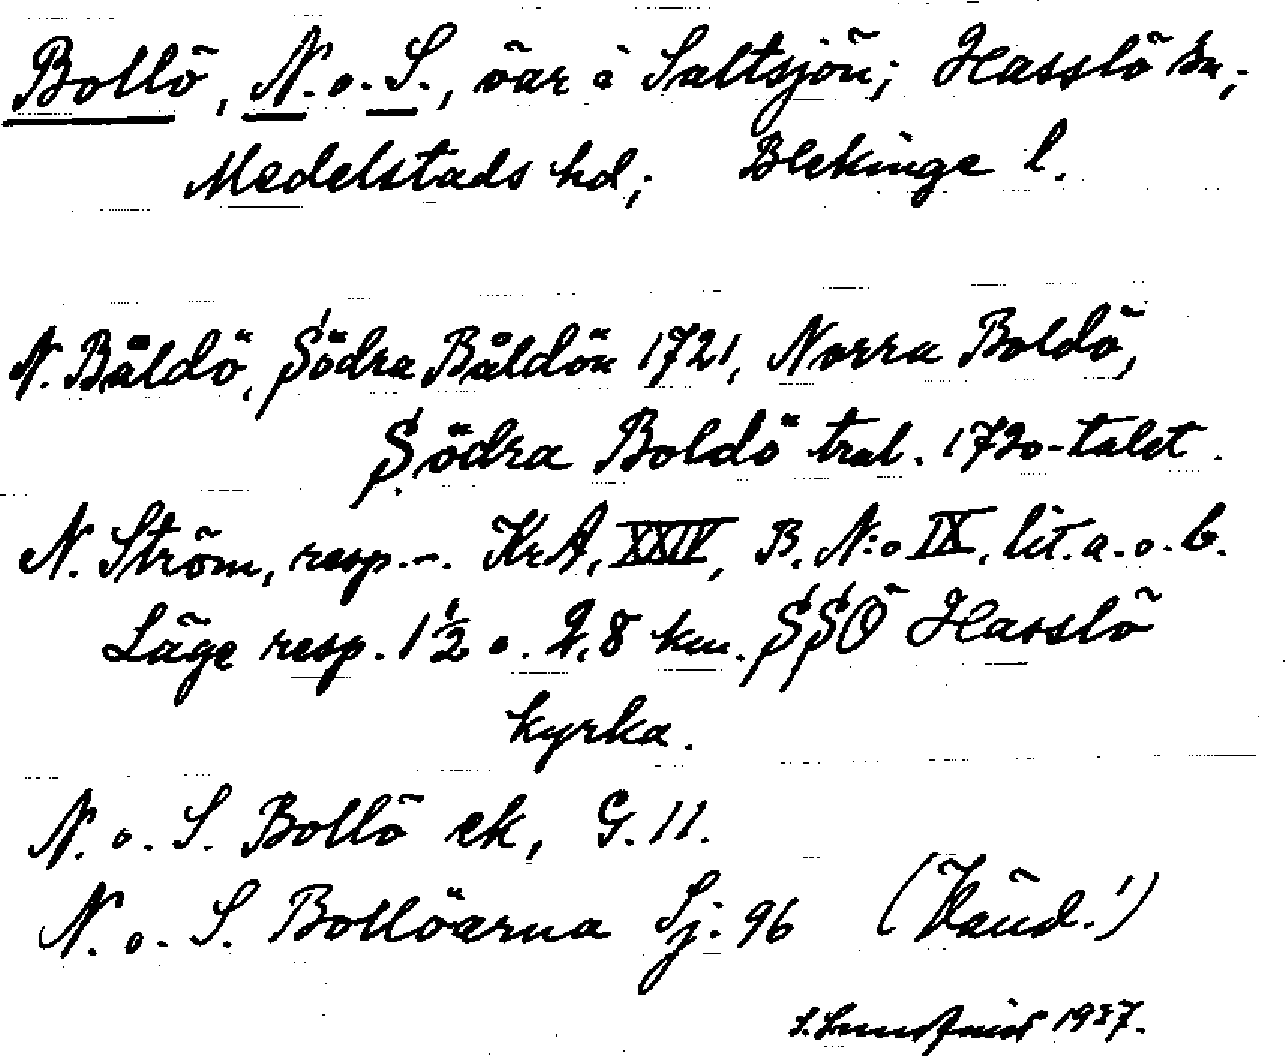 Bollö, N. o. S., öar i Saltsjön; Hasslö sn,
Medelstads hd; Blekinge l.
N. Båldö, Södra Båldön 1721, Norra Boldö,
Södra Boldö trol. 1720-talet.
N. Ström, resp. -. KrA, XXIV, B. N:o IX. lit. a. o. b.
Läge resp. 1½ o. 2,8 km. SSO Hasslö
kyrka.
N. o. S. Bollö ek, G. 11.
N. o. S. Bollöarna Sj. 96 (Vänd!)
1937.